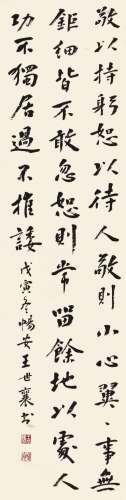 敬以持躬恕以待人敬則小心翼〻事無
鉅細皆不敢忽恕則常留餘地以處人
功不獨居過不推諉
戊寅冬暢安王世襄書